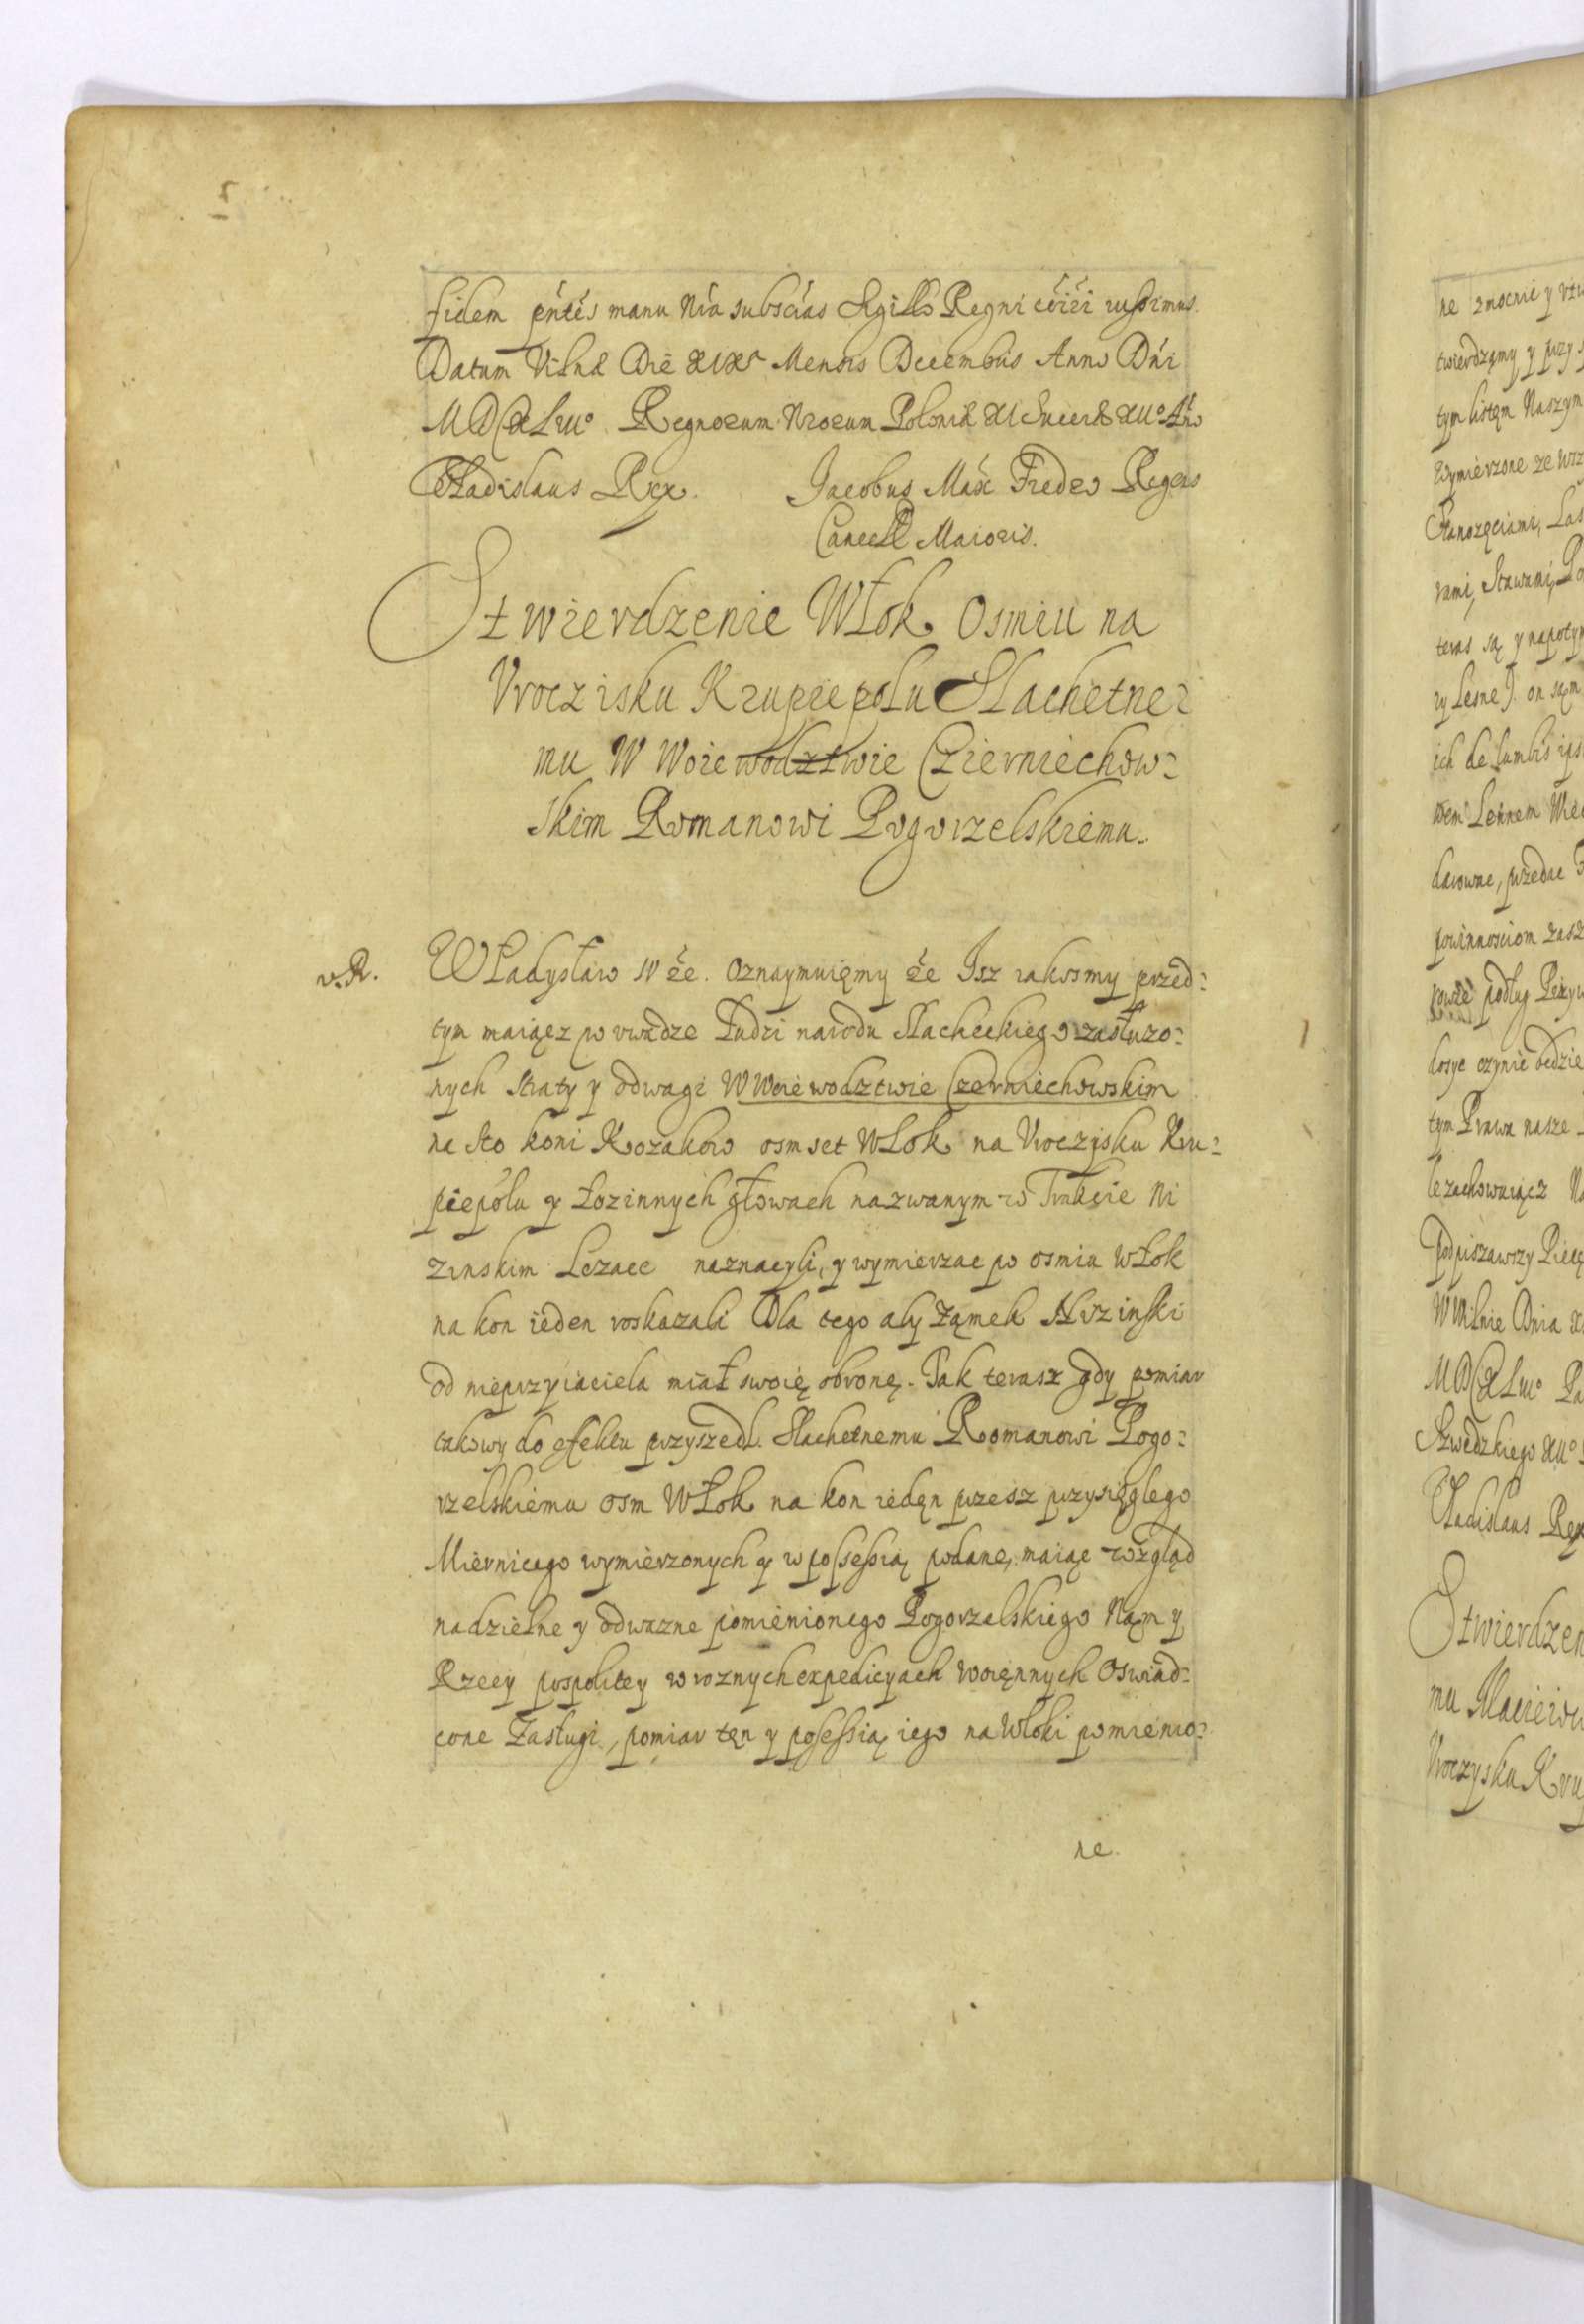 fidem pntes manu Nra subscras Sigillo Regni coiri iussimus.
Datum Vilnæ Die XIXª Mensis Decembris Anno Dni
MDCXLIIIº Regnorum Nrorum Poloniæ XI Sueciæ XIIº Ano
Vladislaus Rex. Jacobus Max Fredro Regens
Cancell Maioris.
Stwierdzenie Włok Osmiu na
Vroczisku Krupiepolu Slachetne⸗
mu W Woiewodztwie Czierniechow⸗
skim Romanowi Pogorzelskiemu.
v. R. Władysław IV &c. Oznaymuięmy &c Isz iakosmy przed⸗
tym maiącz w vwadze Ludzi narodu Slacheckiego zasłuzo⸗
nych straty y odwagi W Woiewodztwie Czerniechowskim
na sto koni Kozakow osmset Włok na Vroczysku Kru⸗
piepolu y Łozinnych głowach nazwanym w Trakcie Ni
zinskim Lezace naznaczyli, y wymierzac po osmiu Włok
na kon ieden roskazali Dla tego aby Zamek Nizinski
od nieprzyiaciela miał swoię obronę. Tak terasz gdy pomiar
takowy do efektu przyszedl. Slachetnemu Romanowi Pogo⸗
rzelskiemu osm Włok na kon iedęn przesz przysięglego
Miernicego wymierzonych y w possessią podane, maiąc wzgląd
na dzielne y odwazne pomienionego Pogorzelskiego Nąm y
Rzeczy pospolitey w roznych expedicyach Woięnnych Oswiad⸗
cone Zasługi, pomiar tęn y posessią iego na Włoki pomienio⸗
ne
ne zmocnie y
twierdzamy y przy
tym listęm Naszym
Wymierzone ze
Sianozęciami, Las
rami, Stawami, Po
teras są y napotym
ry Lesne). on sąm
ich de lumbis
wem Lennem
darowac, przedac
powinnosciom
podlug
dosyc czynic będzie
tym Prawa nasze
le zachowuiącz Na
Podpisawszy
W Wilnie Dnia
MDCXLIIIº
Szwedzkiego XIIº
Vladislaus Rex
Stwierdzen
mu Macieiow
Vroczysku Kru